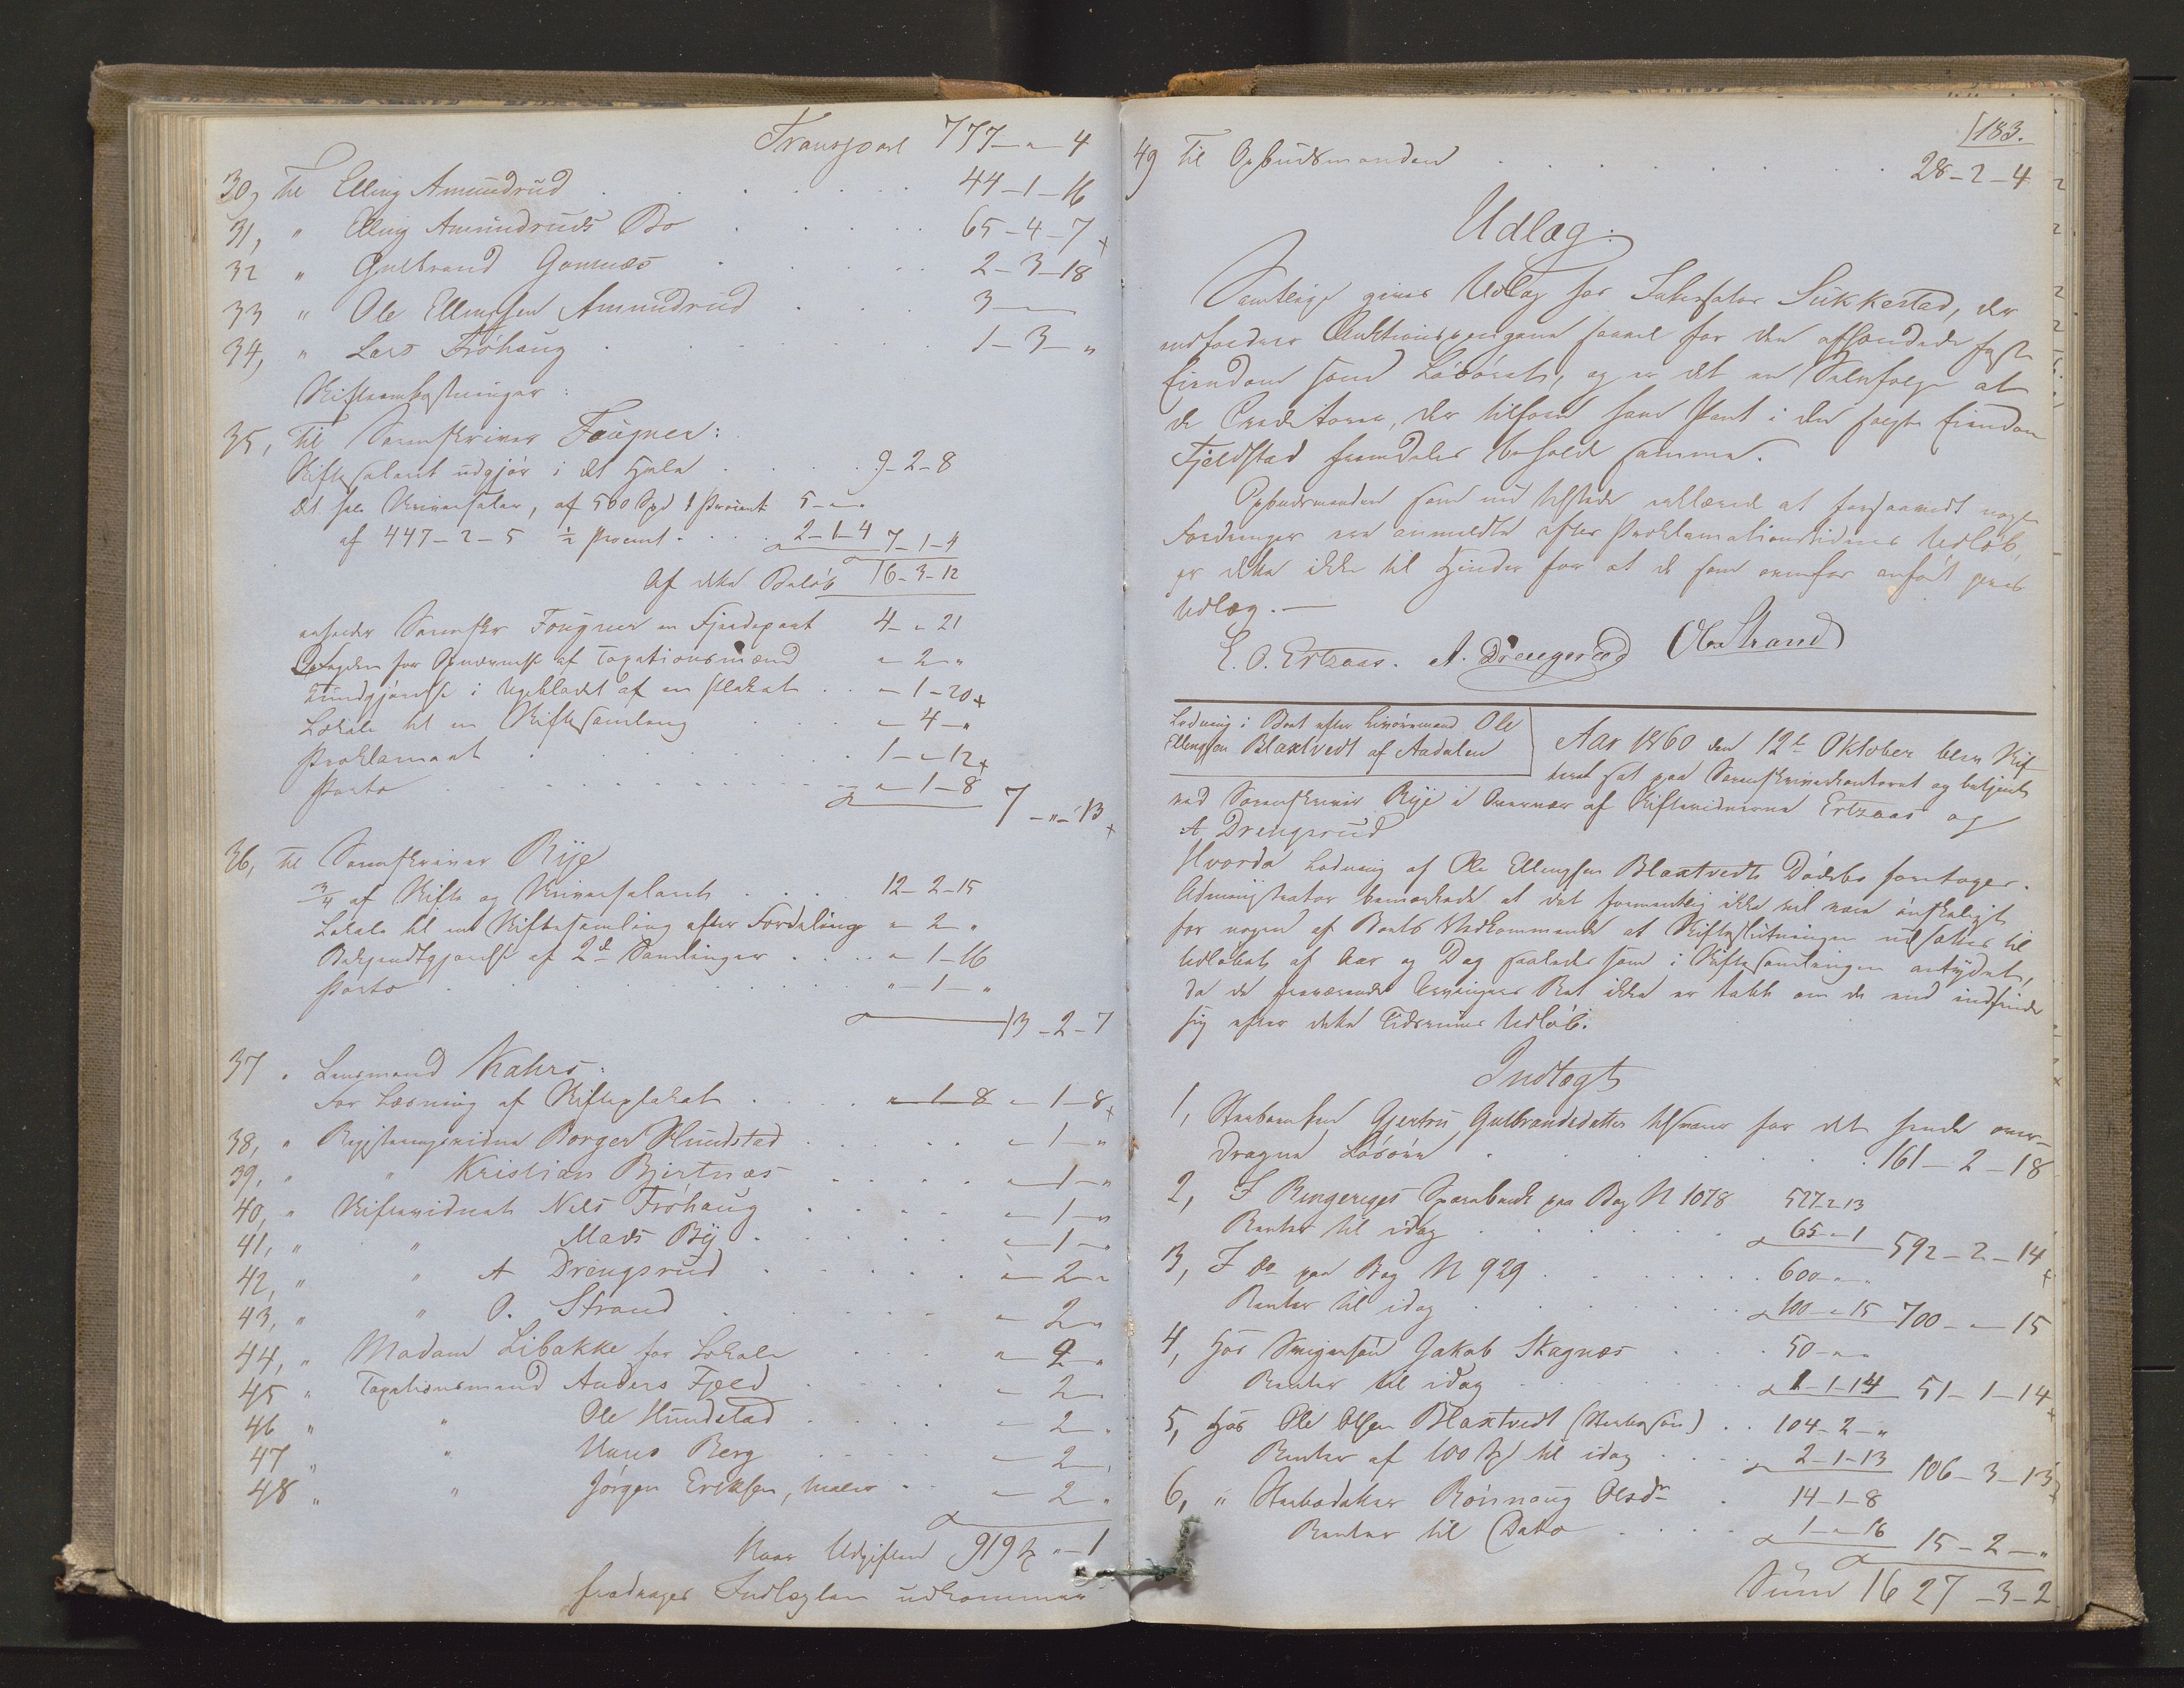 Transport 777 - " - 4
30, Til Elling Amundrud . . . . . 44 - 1 - 16
31, " Elling Amundruds Bo . . . . . 65 - 4 - 7 +
32 " Gulbrand Gonnæs . . . . 2 - 3 - 18
33 " Ole Ellingsen Amundrud . . . 3 - "
34, " Lars Fröhaug . . . . . 1 - 3 - "
Skifteomkostninger:
35, Til Sorenskriver Fougner:
Skiftesalaret udgjør i det Hele . . . . 9 - 2 - 8
det hele Skriversalær, af 500 Spd 1 Procent 5 - " -
af 447 - 2 - 5 ½ Procent . . . . 2 - 1 - 4 7 - 1 - 4
Af dette Beløb 16 - 3 - 12
erholder Sorenskr Fougner en Fjerdepart 4 - " 21
for Opnævnelse af Taxationsmænd " 2 - "
Kundgjørelse i Ugebladet af en Plakat . . " - 1 - 20 +
Lokale til en Skiftesamling . . . " - 4 - "
Proklamaet . . . . . 1 - " - 12 +
Porto . . . . . " - 1 - 8
7 - " - 13 +
36, Til Sorenskriver Rye
¾ af Skifte og Skriversalaret . . . 12 - 2 - 15
Lokale til en Skiftesamling efter Fordeling " 2 - "
Bekjendtgjørelse af 2de Samlinger . . . . " 1 - 16
Porto . . . . . " - 1 - "
13 - 2 - 7
37 " Lensmand Kahrs:
For Læsning af Skifteplakat . . . . " 1 - 8 " - 1 - 8 +
38, " Registeringsvidne Borger Hundstad . . . . " - 1 - "
39, " " Kristian Bjertnæs . . . . " - 1 - "
40, " Skiftevidnet Nils Fröhaug . . . . " - 1 - "
41, " " Mads By . . . . " - 1 - "
42, " " A Drengsrud . . . . " - 2 - "
43, " " O. Strand . . . . " - 2 "
44, " Madam Libakke for Lokale . . . " - 2 - "
45 " Taxationsmand Anders Fjeld . . . " - 2 -
46 " " Ole Hundstad . . . . " - 2 - "
47 " " Hans Berg . . . . " - 2 - "
48 " " Jörgen Eriksen, . . " - 2 - "
Naar Udgiften 919 " - 1
fradrages Indtægten udkommer
183.
49 Til Opbudsmanden . . . . . . 28 - 2 - 4
Udlæg.
Samtlige gives Udlæg hos Inkassator Sukkestad, der
indfordrer Auktionspengene saavel for den afhændede faste
Eiendom som Løsøret, og er det en Selvfølge at
de Creditorer, der tilforn have Pant i den solgte Eiendom
Fjeldstad fremdeles beholde samme.
Opbudsmanden som nu tilstede erklærede at forsaavidt nogle
Fordringer ere anmeldte efter Proklamationstidens Udløb,
er dette ikke til Hinder for at de som ovenfor anført gives
Udlæg. —
E. O. Ertzaas. A. Drengsrud Ole Strand
Lodning i Boet efter Livøremand Ole
Ellingsen Blaxtvedt af Aadalen
Aar 1860 den 12te Oktober blev Skif-
teret sat paa Sorenskriverkontoret og betjent
ved Sorenskriver Rye i Overvær af Skiftevidnerne Ertzaas og
A. Drengsrud
Hvorda Lodning af Ole Ellingsen Blaxtvedts Dødsbo foretoges.
Administrator bemærkede at det formentlig ikke vil være ønskeligt
for nogen af Boets Vedkommende at Skifteslutningen udsættes til
Udløbet af Aar og Dag saaledes som i Skiftesamlingen antydet,
da de fraværende Arvingers Ret ikke er tabt om de end indfinde
sig efter dette Tidsrums Udløb.
Indtægt
1, Stervboenken Gjertru Gulbrandsdatter tilsvarer for det hende over-
dragne Løsøre . . . . . 161 - 2 - 18
2, I Ringeriges Sparebank paa Bog N 1078 527 - 2 - 13
Renter til idag . . . . 65 - " 1 592 - 2 - 14 +
3, I do paa Bog N 929 . . . . . 600 - " -
Renter til idag . . . . . 100 - " 15 700 - " - 15
4, Hos Svigersøn Jakob Skagnæs . . . 50 - " -
Renter til idag . . . . . 1 - 1 - 14 51 - 1 - 14 +
5, Hos Ole Olsen Blaxtvedt (Stervbosøn) . . 104 - 2 - "
Renter af 100 Spd til idag . . . . 2 - 1 - 13 106 - 3 - 13 +
6, " Stervbodatter Rönnoug Olsdr . . 14 - 1 - 8
Renter til Dato . . . . 1 - " - 16 15 - 2 - "
Sum 1627 - 3 - 2